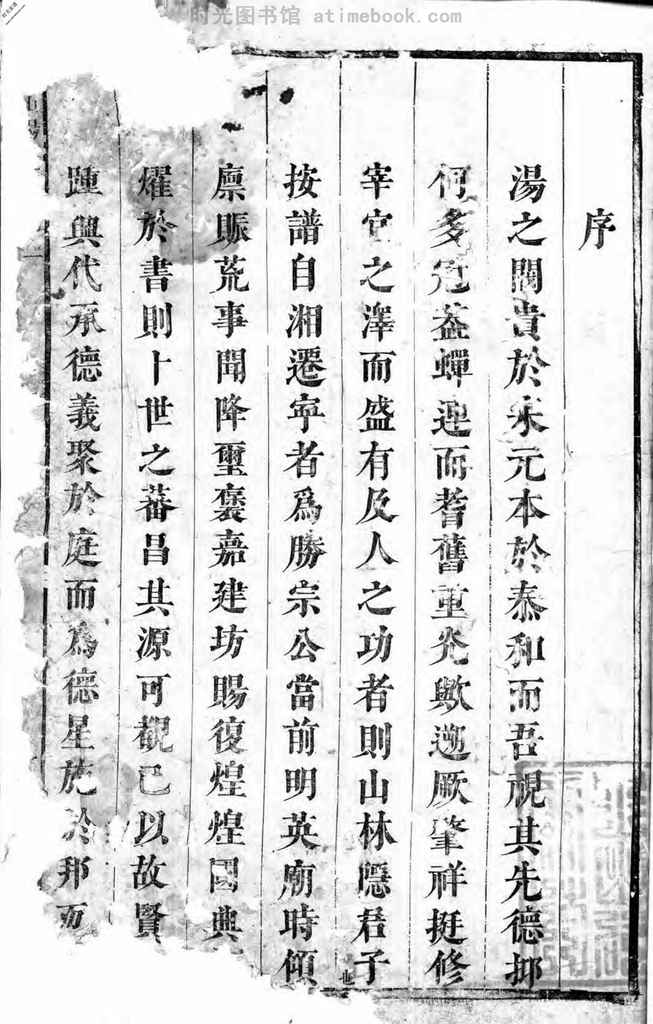 时光图书馆 atimebook.com
序
湯之閥貴於宋元本於泰和而吾視其先德抑
何多冠葢蟬連而耆舊重光歟遡厥肇祥挺修
宰官之澤而盛有及人之功者則山林隱君子
也
按譜自湘遷寜者爲勝宗公當前明英廟時傾
廪賑荒事聞降璽褒嘉建坊賜復煌煌國典
燿於書則十世之蕃昌其源可觀已以故賢
踵興代承德義聚於庭而爲德星施於邦而